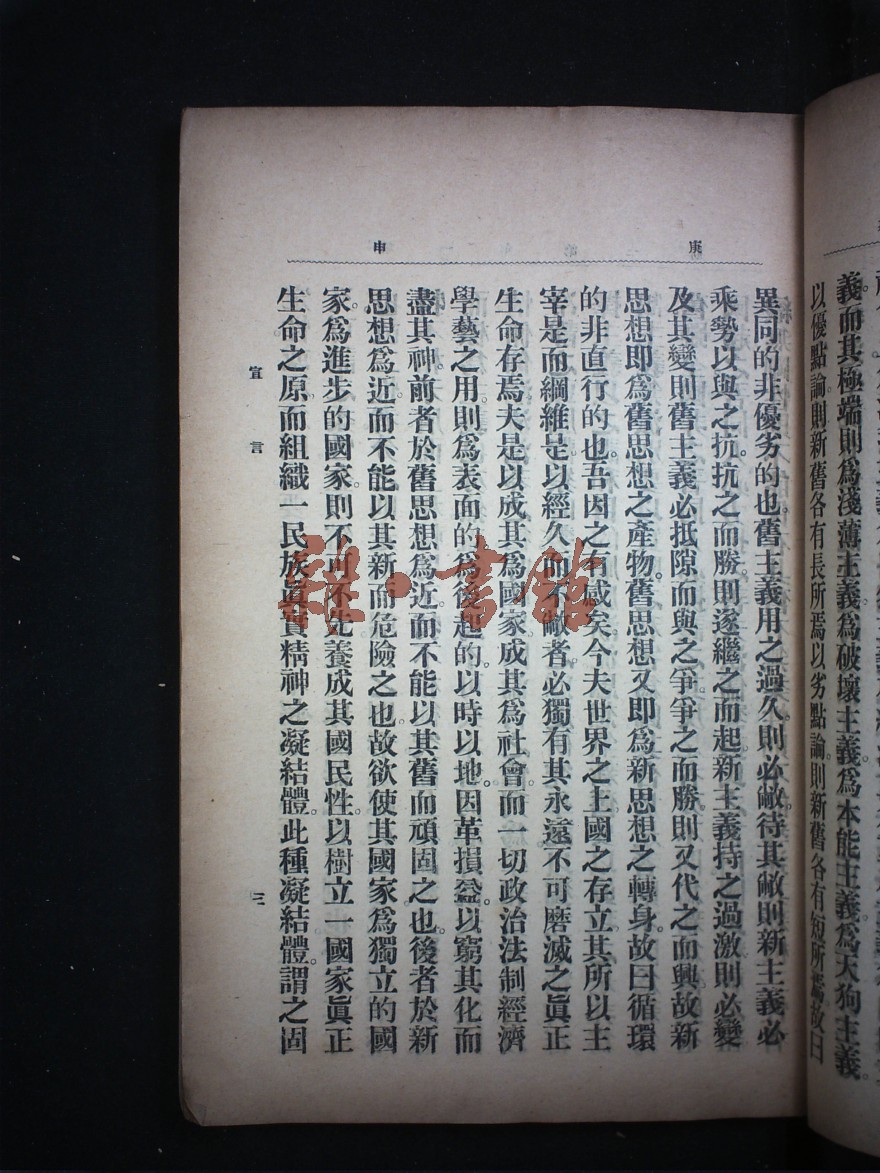 義而其極端則為淺薄主義。為破壞主義。為本能主義。為天狗主義。
以優點論。則新舊各有長所焉。以劣點論。則新舊各有短所焉。故曰
庚申
異同的非優劣的也。舊主義用之過久。則必敝。待其敝則新主義必
乘勢以與之抗。抗之而勝。則遂繼之而起。新主義持之過激。則必變
及其變則舊主義必抵隙而與之爭。爭之而勝。則又代之而興。故新
思想即爲舊思想之產物。舊思想又即爲新思想之轉身。故曰循環
的非直行的也。吾因之有感矣。今夫世界之上國之存立其所以主
宰是而綱維是以經久而不敝者。必獨有其永遠不可磨滅之眞正
生命存焉。夫是以成其爲國家。成其爲社會。而一切政治法制經濟
學藝之用。則爲表面的。爲後起的。以時以地。因革損益。以窮其化而
盡其神。前者於舊思想爲近。而不能以其舊而頑固之也。後者於新
思想爲近。而不能以其新而危險之也。故欲使其國家爲獨立的國
家。爲進步的國家。則不可不先養成其國民性。以樹立一國家眞正
生命之原。而組織一民族眞實精神之凝結體。此種凝結體。謂之固
宣言
三